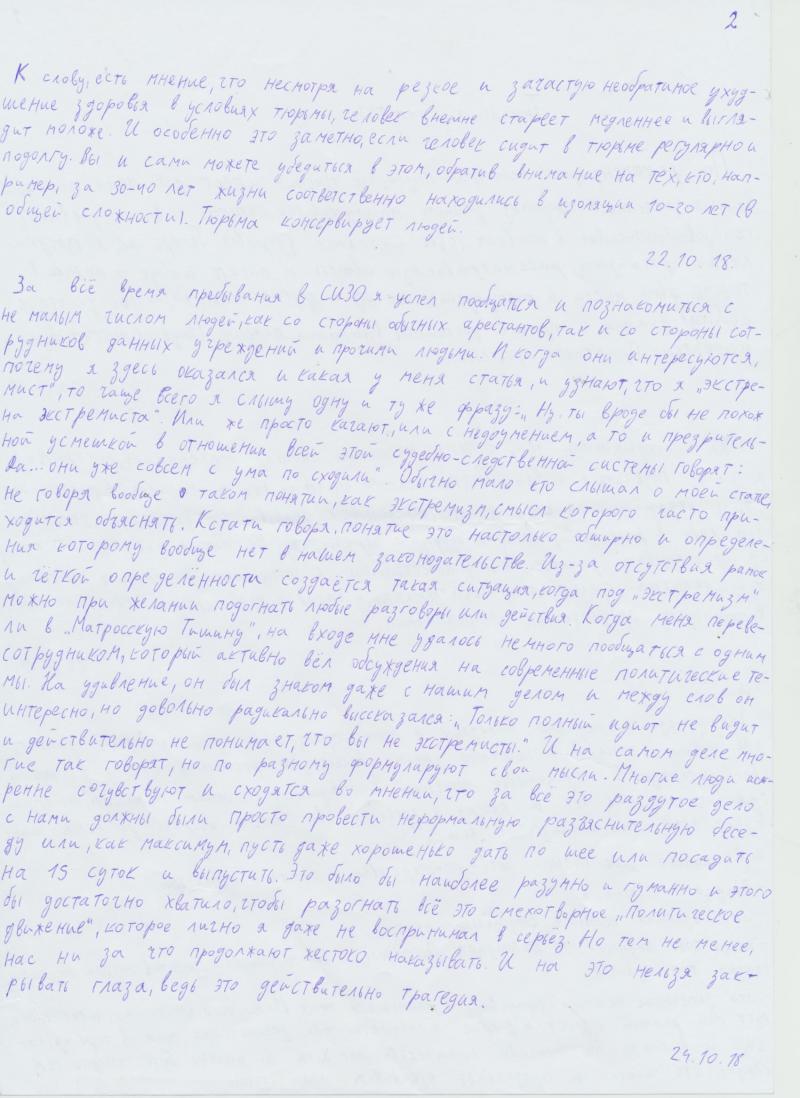 2
К слову, есть мнение, что несмотря на резкое и зачастую необратимое ухуд-
шение здоровья в условиях тюрьмы, человек внешне стареет медленнее и выгля-
дит моложе. И особенно это заметно, если человек сидит в тюрьме регулярно и
подолгу. Вы и сами можете убедиться в этом, обратив внимание на тех, кто, нап-
ример, за 30-40 лет жизни соответственно находились в изоляции 10-20 лет (в
общей сложности). Тюрьма консервирует людей.
22.10.18.
За всё время пребывания в СИЗО я успел пообщаться и познакомиться с
не малым числом людей, как со стороны обычных арестантов, так и со стороны сот-
рудников данных учреждений и прочими людьми. И когда они интересуются,
почему я здесь оказался и какая у меня статья, и узнают, что я „экстре-
мист", то чаще всего я слышу одну и ту же фразу: „Ну ты вроде бы не похож
на экстремиста". Или же просто кивают, или с недоумением, а то и презритель-
ной усмешкой в отношении всей этой судебно-следственной системы говорят:
„Да... они уже совсем с ума по сходили". Обычно мало кто слышал о моей статье,
не говоря вообще о таком понятии, как экстремизм, смысл которого часто при-
ходится объяснять. Кстати говоря, понятие это настолько обширно и определе-
ния которому вообще нет в нашем законодательстве. Из-за отсутствия рамок
и чёткой определённости создаётся такая ситуация, когда под „экстремизм"
можно при желании подогнать любые разговоры или действия. Когда меня переве-
ли в „Матросскую Тишину", на входе мне удалось немного пообщаться с одним
сотрудником, который активно вёл обсуждения на современные политические те-
мы. На удивление, он был знаком даже с нашим делом и между слов он
интересно, но довольно радикально высказался: „Только полный идиот не видит
и действительно не понимает, что вы не экстремисты." И на самом деле мно-
гие так говорят, но по разному формулируют свои мысли. Многие люди иск-
ренне сочувствуют и сходятся во мнении, что за всё это раздутое дело
с нами должны были просто провести неформальную разъяснительную бесе-
ду или, как максимум, пусть даже хорошенько дать по шее или посадить
на 15 суток и выпустить. Это было бы наиболее разумно и гуманно и этого
бы достаточно хватило, чтобы разогнать всё это смехотворное „Политическое
движение", которое лично я даже не воспринимал в серьёз. Но тем не менее,
нас ни за что продолжают жестоко наказывать. И на это нельзя зак-
рывать глаза, ведь это действительно трагедия.
24.10.18